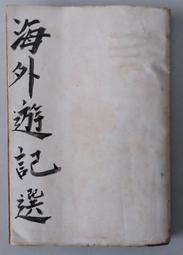 海外遊記選